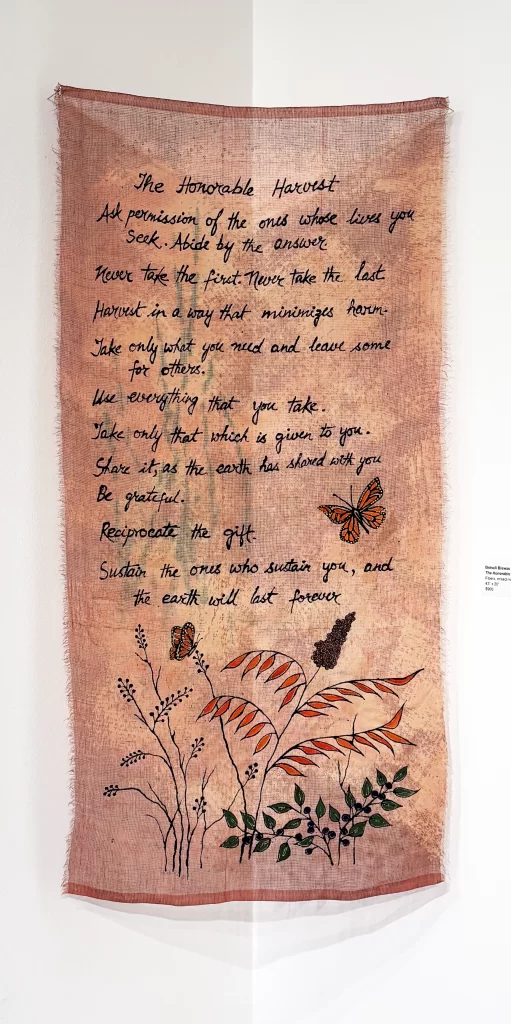 The Honorable Harvest
Ask permission of the ones whose lives you
Seek. Abide by the answer
Never take the first. Never take the last
Harvest in a way that minimizes harm.
Take only what you need and leave some
for others.
Use everything that you take.
Take only that which is given to you.
Share it, as the earth has shared with you
Be grateful.
Reciprocate the gift.
Sustain the ones who sustain you, and
the earth will last forever
The Honorable